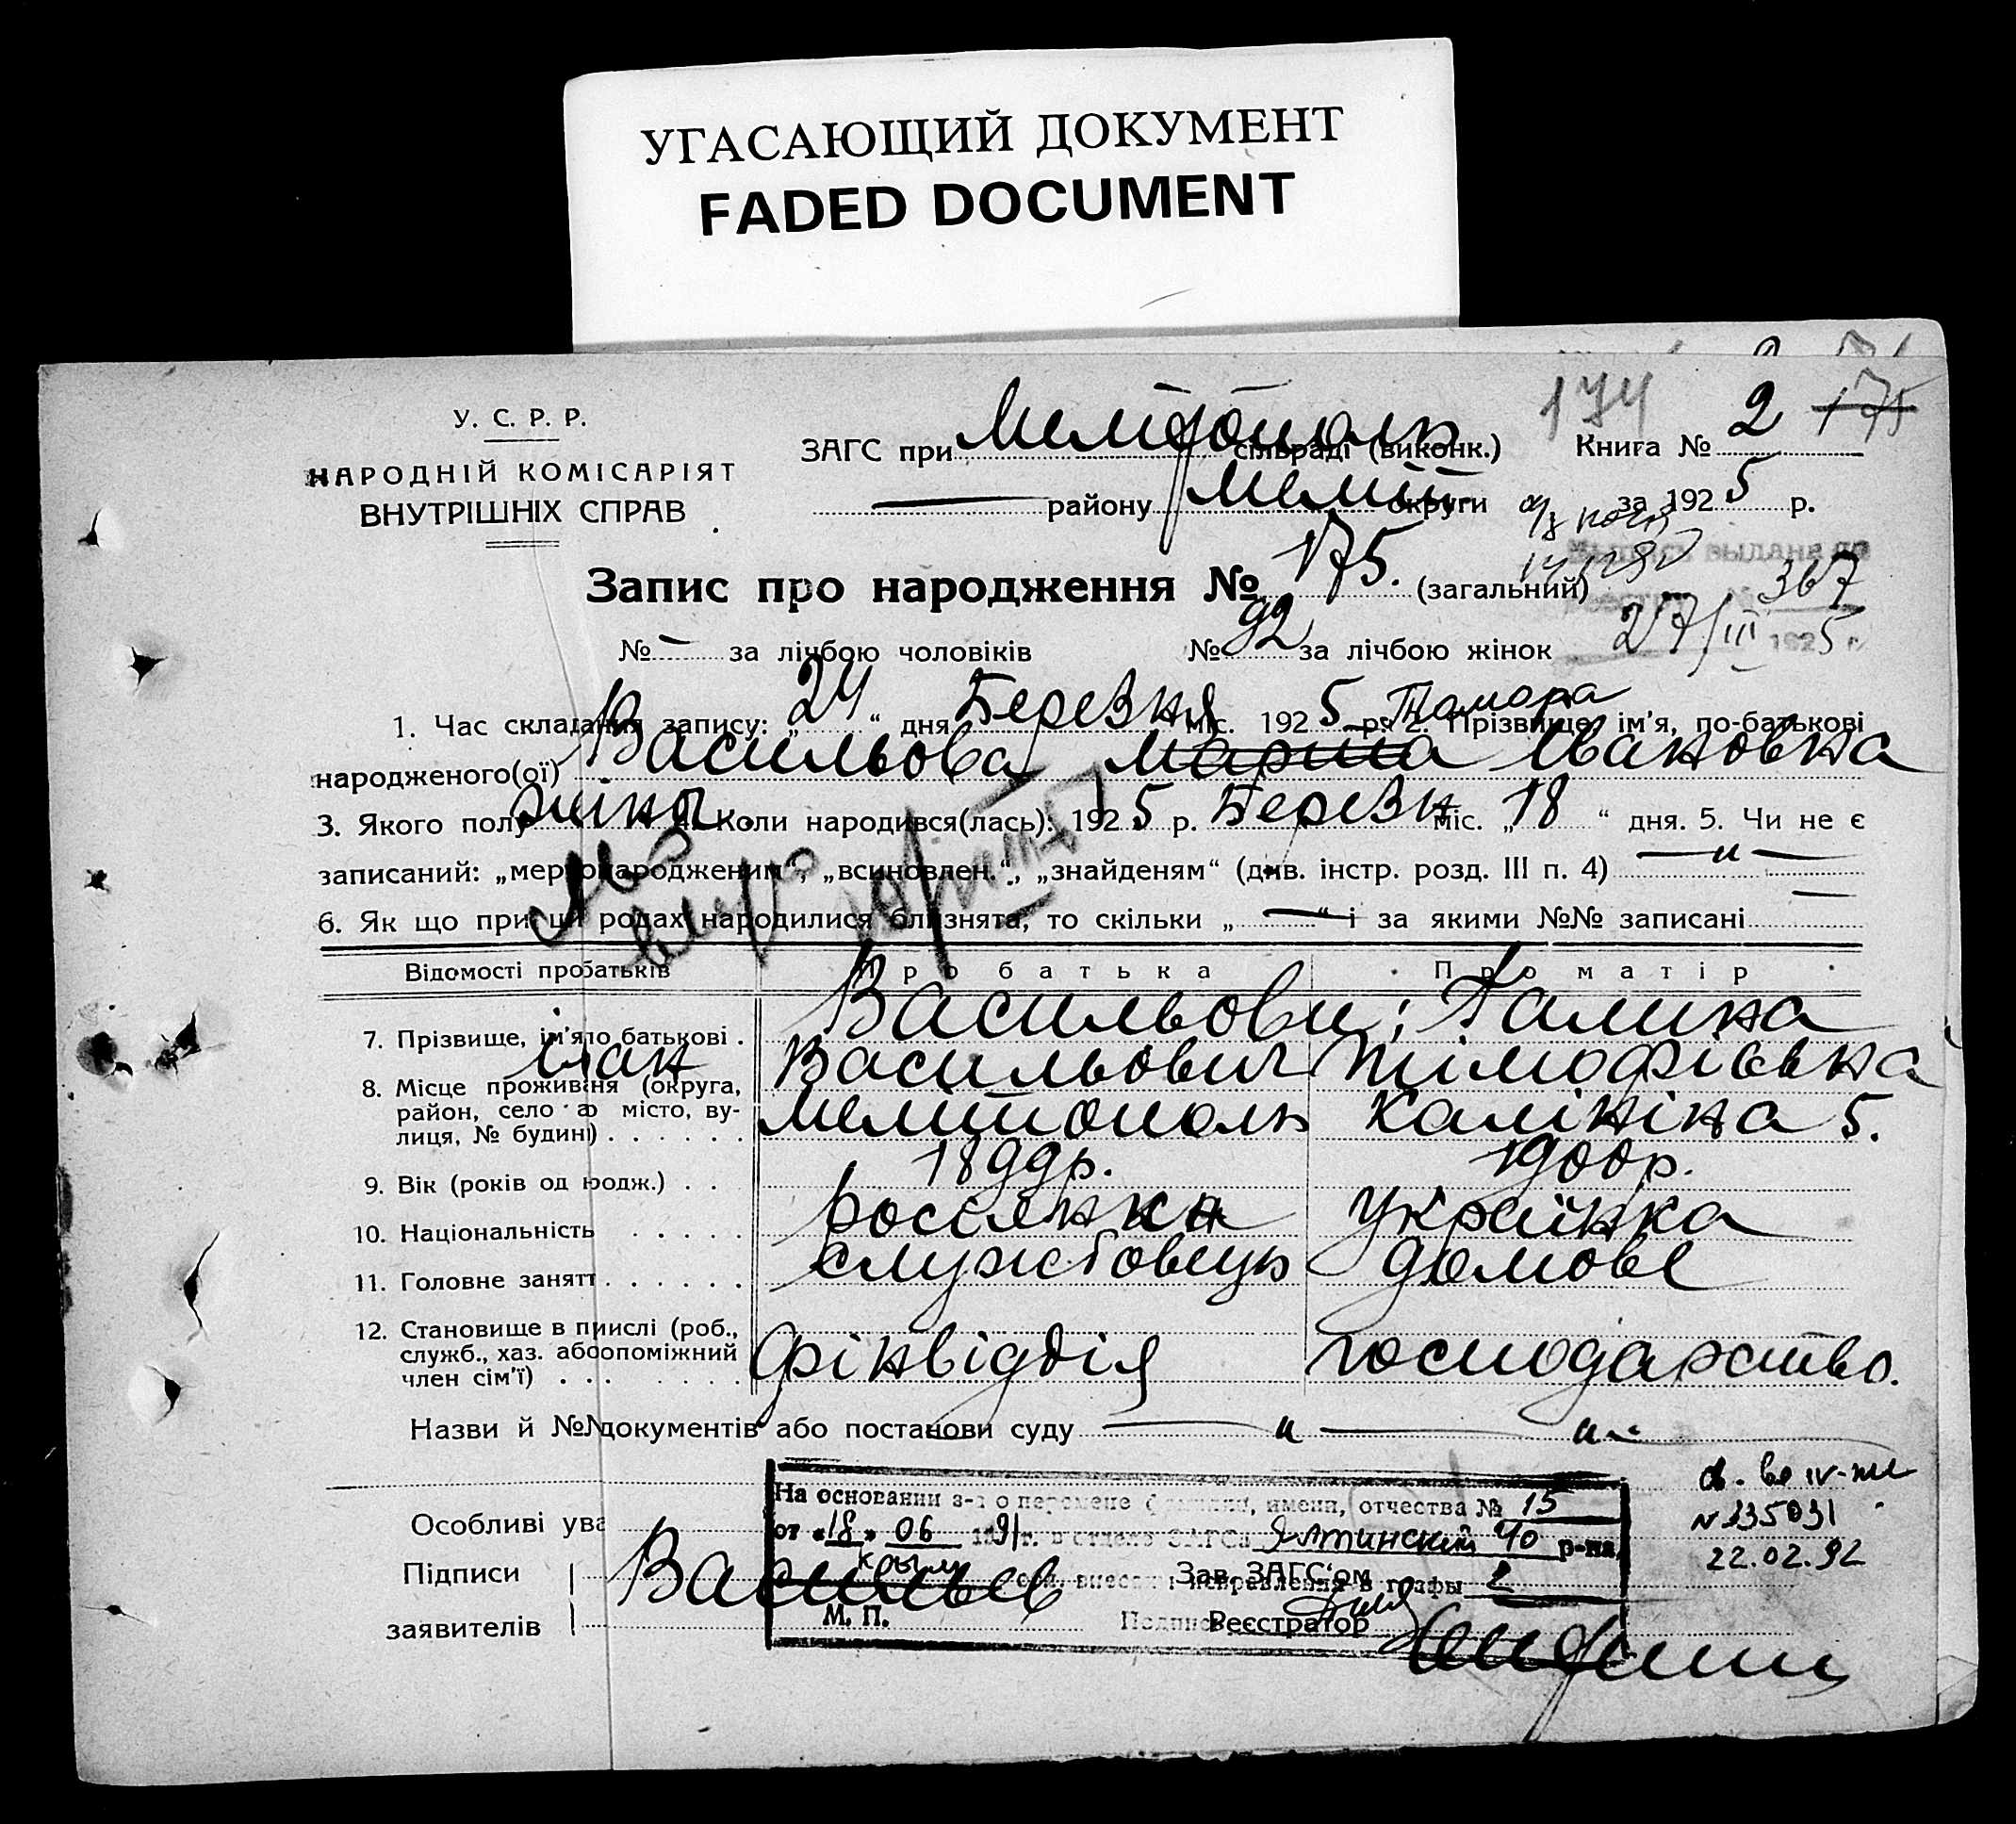 УГАСАЮЩИЙ ДОКУМЕНТ
FADED DOCUMENT
У. С. Р. Р.
НАРОДНІЙ КОМІСАРІЯТ
ВНУТРІШНІХ СПРАВ
174 175
ЗАГС при Мелітополь сільраді (виконк.) Книга № 2
району Меліт. округи за 1925 р.
Запис про народження № 175. (загальний)
выдана
367
№ – за лічбою чоловіків № 92 за лічбою жінок 27/III 1925 г.
1. Час складання запису: „24“ дня Березня міс. 1925 р. 2. Прізвище, ім'я, по-батькові
Тамара
народженого(ої) Васильова Марина Івановна
3. Якого полу жіноч. 4. Коли народився(лась): 1925 р. Березн міс. „18“ дня. 5. Чи не є
записаний: „мертвонародженим“, „всиновлен.“, „знайденям“ (див. інстр. розд. III п. 4) — „ —
6. Як що при ци родах народилися близнята, то скільки „—“ і за якими №№ записані —
Відомості про батьків Про батька Про матір
7. Прізвище, ім'я по батькові . Васильови; Галина
Іван Васильович Тімофієвна
8. Місце проживання (округа, район, село або місто, вулиця, № будині) . . . . . . Мелітополь Калініна 5.
9. Вік (років од народж.) . . 1899р. 1900р.
10. Національність . . . . . россіянка Українка
11. Головне занятт . . . . . . службовець домове
12. Становище в промислі (роб., служб., хаз. або допоміжний член сім'ї) . . . фінвідділ господарство.
Назви й №№ документів або постанови суду — „ — „ —
На основании з-а о перемене фамилии, имени, отчества № 15
от «18» 06 1991г. в отделе ЗАГСа Ялтинский ЧО р-на
Крым обл. внесены исправления в графы 2
М. П. Подпись
№ 135031
22.02.92
Особливі ува
Підписи Васильев Зав. ЗАГС'ом
заявителів Реєстратор